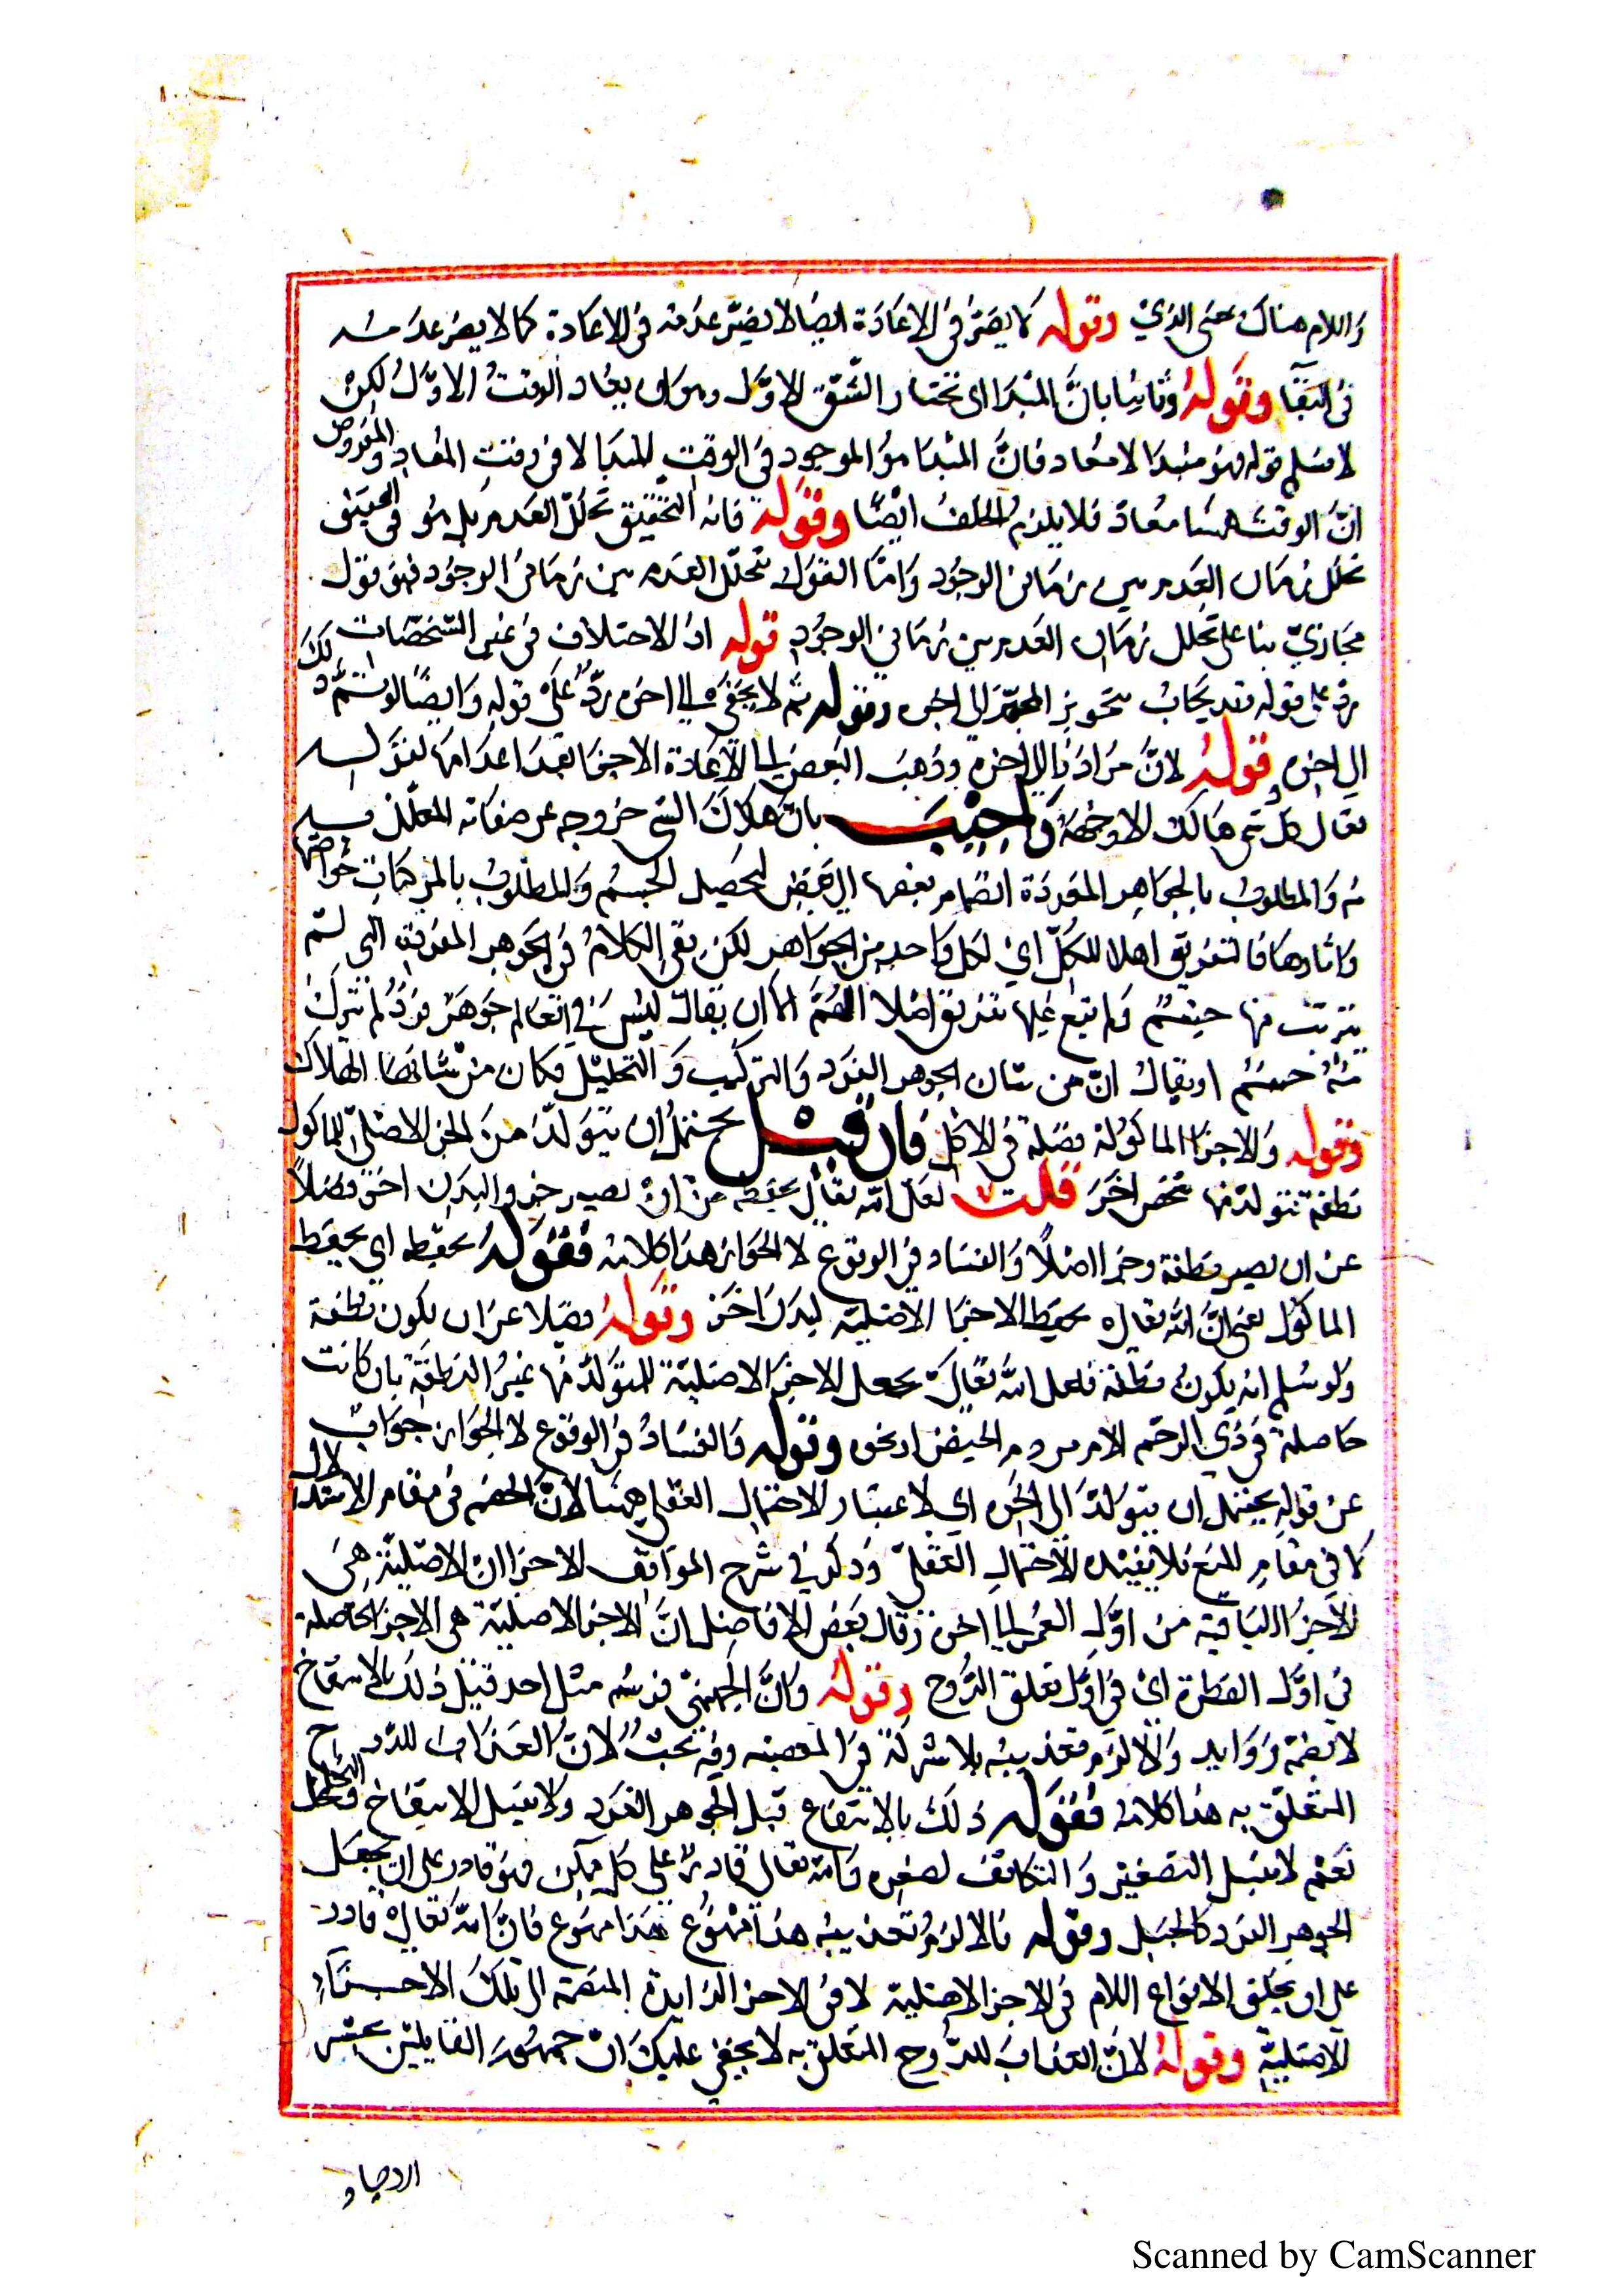 واللام هناك بمعنى الذي وقوله لا يضر في الاعادة ايضا لا يضر عدمه في الاعادة كما لا يضر عدمه
في البقآ وقوله وثانيا بان المبدا اي نختار الشق الاول وهو ان يعاد الوقت الاول لكن
لا نسلم قوله فهو مبتدا لا معاد فان المبتدا هو الموجود في الوقت المبتدا لا في وقت المعاد والمفروض
ان الوقت ههنا معاد فلا يلزم الخلف ايضا وقوله فانه التحقيق تخلل العدم بل هو في الحقيقة
تخلل زمان العدم بين زماني الوجود واما القول بتخلل العدم بين زماني الوجود فهو قول
مجازي بنا على تخلل زمان العدم بين زماني الوجود قوله اذ الاختلاف في غير المشخصات
رد على قوله وقد يجاب بتجويز التميز الى اخره وقوله ثم لا يخفى الى اخره رد على قوله وايضا لو تم ذلك
الى اخره قوله لان مراد بالى اخره وذهب البعض الى الاعادة الاجزا بعد اعدامها لقوله
تعالى كل شي هالك الا وجهه واجيب بان هلاك الشي خروجه عن صفاته المطلوبة
منه والمطلوب بالجواهر المفردة انضمام بعضها الى بعض لتحصيل الجسم والمطلوب بالمركبات خواصها
واثارها فالتفريق اهلاك للكل اي لكل واحد من الجواهر لكن بقي الكلام في الجوهر المفردة التي لم
يترتب منها جسم ولم تبع عليها تفريق اصلا اللهم الا ان يقال ليس في العالم جوهر فرد لم يتركب
منه جسم او يقال ان من شان الجوهر الفرد والتركيب والتحليل فكان من شانها الهلاك
وقوله والاجزا الماكولة فضلة في الاكل فان قيل يحتمل ان يتولد من الجز الاصلي للماكول
نطفة تتولد منها شخص اخر قلت لعل الله تعالى يحفظه من ان تصير جزو البدن اخر فضلا
عن ان يصير نطفة وجزا اصلا والفساد في الوقوع لا الجواز هذا كلامه فقوله يحفظه اي يحفظ
الماكول يعني ان الله تعالى يحفظ الاجزا الاصلية لبدن اخر وقوله فضلا عن ان يكون نطفة
ولو سلم انه يكون نطفة فلعل الله تعالى يجعل الاجزا الاصلية المتولد منها غير النطفة بان كانت
حاصلة في ذي الرحم الام من دم الحيض او نحو وقوله والفساد في الوقوع لا الجواز جواب
عن قوله يحتمل ان يتولد الى اخره اي لا اعتبار الاحتمال العقلي ههنا لان الخصم في مقام الاستدلال
لا في مقام المنع فلا يفيده الاحتمال العقلي وذكر في شرح المواقف الاجزا ان الاصلية هي
الاجزا الباقية من اول العمر الى اخره وقال بعض الافاضل ان الاجزا الاصلية هي الاجزا الحاصلة
في اول الفطرة اي في اول تعلق الروح وقوله وان الجهنمي ضرسه مثل احد قيل ذلك بالانتفاخ
لا بضمه زوايد والا لزم تعذيبه بلا شركة في المعصية وفيه بحث لان العذاب للروح
المتعلق به هذا كلامه فقوله ذلك بالانتفاخ قيل الجوهر الفرد ولا يقبل الانتفاخ والتخلخل
نعم لا يقبل التصغير والتكاثف لصغره والله تعالى قادر على كل ممكن فهو قادر على ان يجعل
الجوهر الفرد كالجبل وقوله والا لزم تعذيبه هذا ممنوع هذا ممنوع فان الله تعالى قادر
على ان يخلق الانواع اللام في الاجزا الاصلية لا في الاجزا الزايدة المنضمة الى تلك الاجزاء
الاصلية وقوله لان العذاب للروح المتعلق به لا يخفى عليك ان جمهور القايلين بحشر
الارواح
Scanned by CamScanner